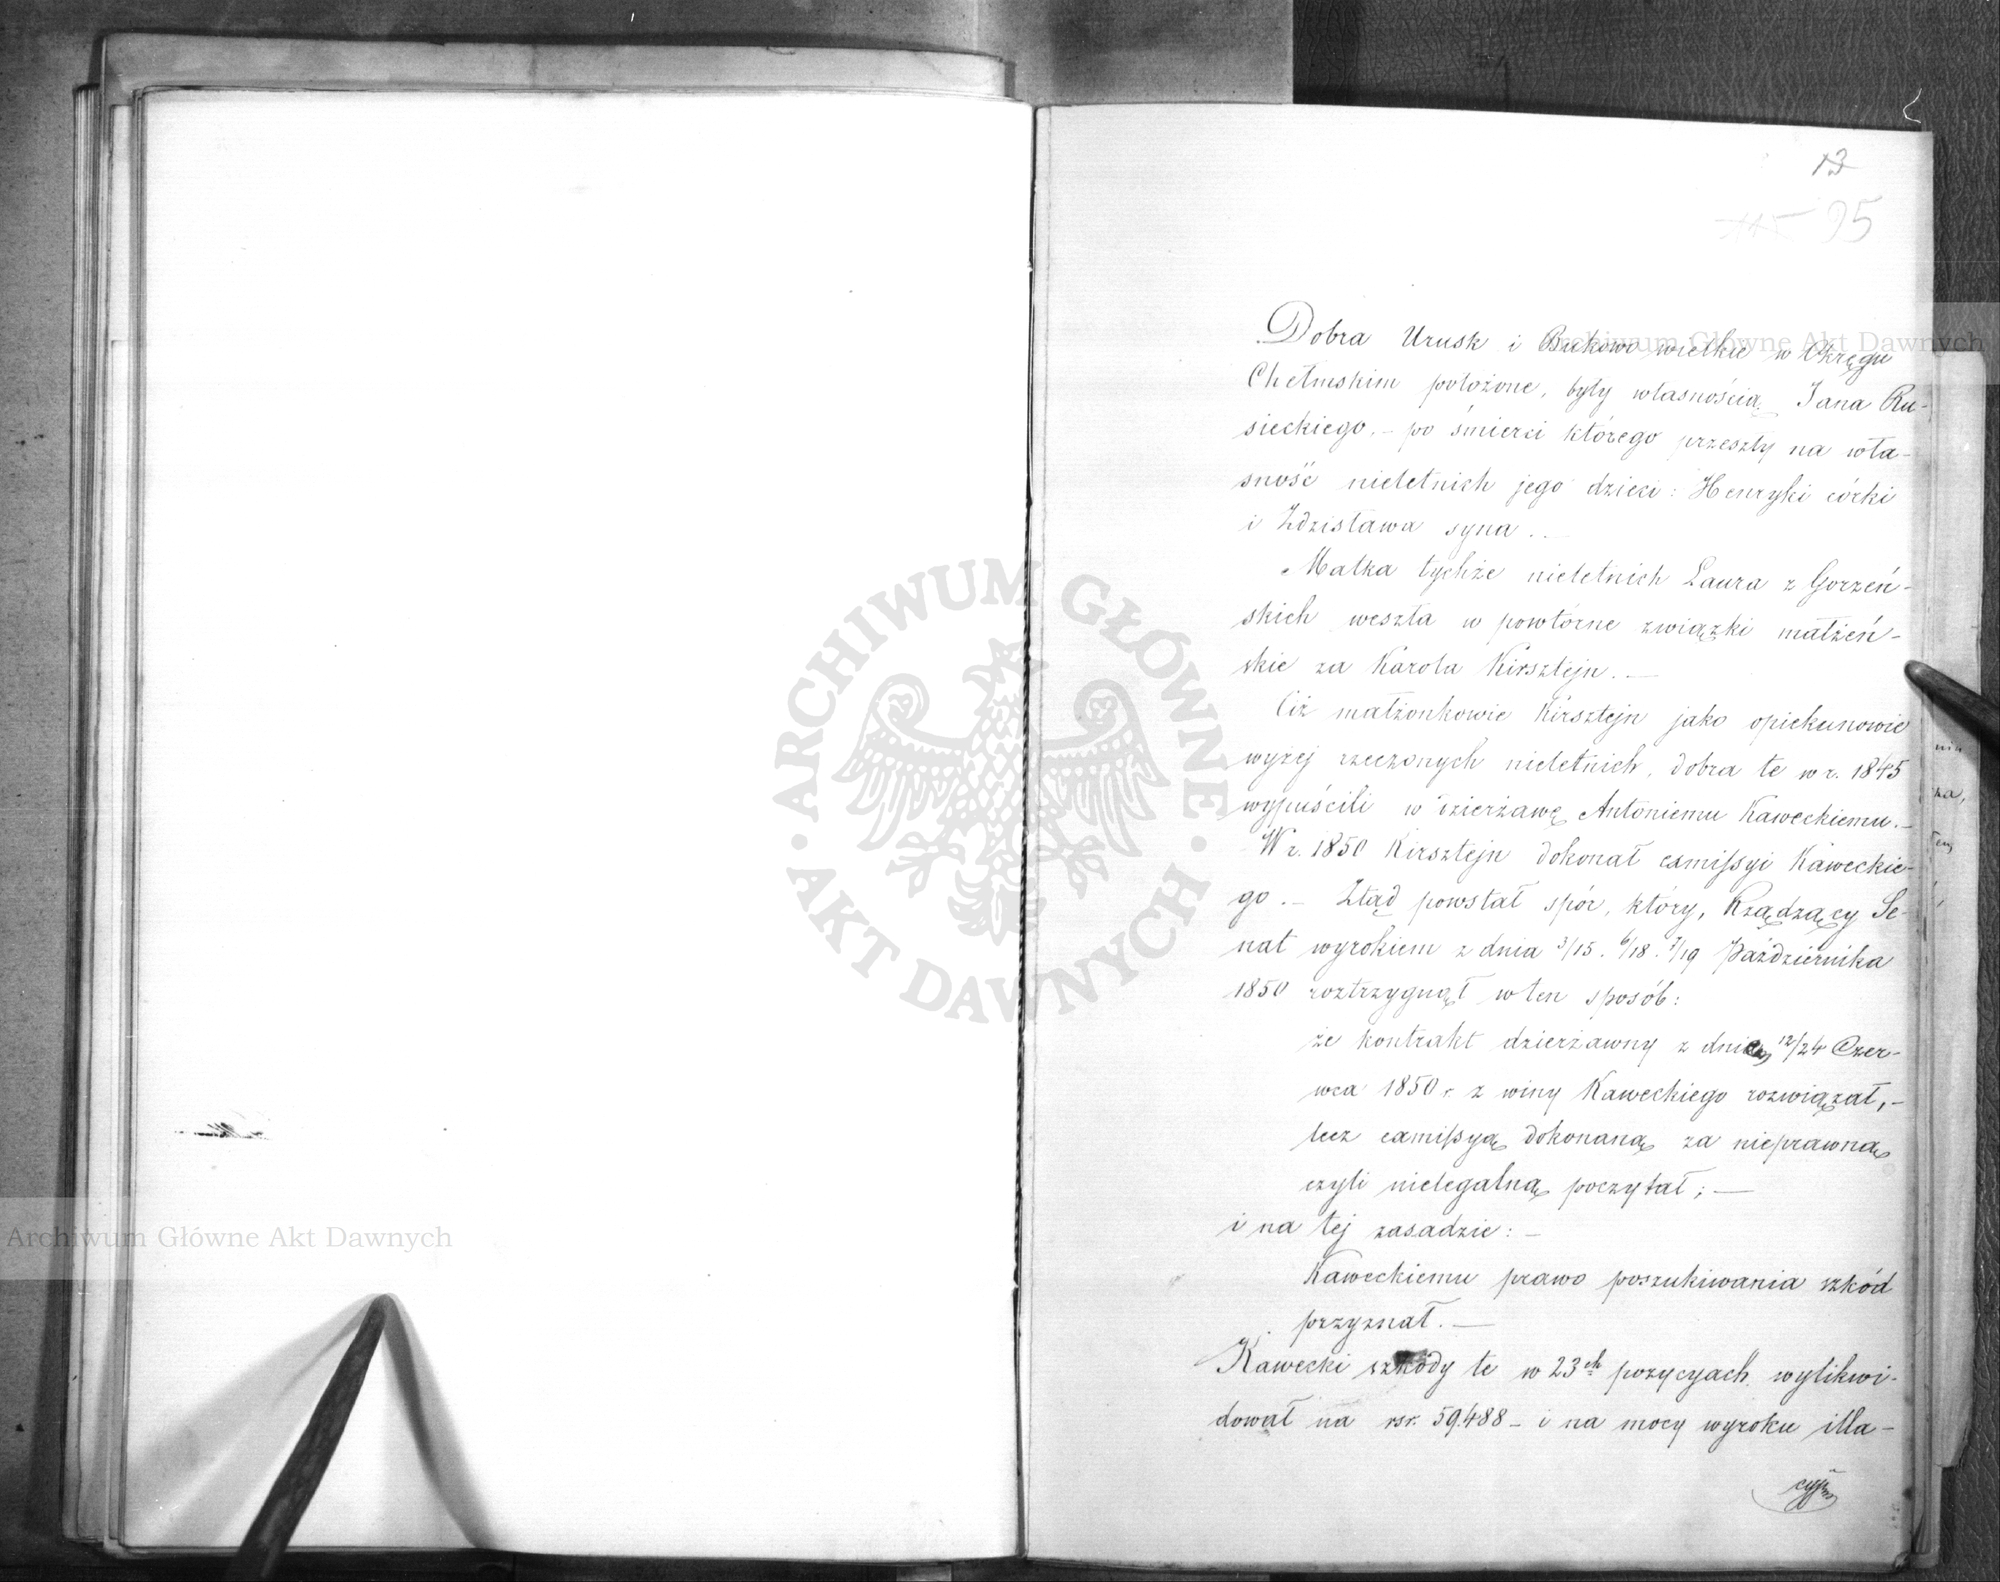 13
95
Dobra Urusk i Bukowo wielkie w Okręgu
Chełmskim położone, były własnością Jana Ru-
sieckiego. – po śmierci którego przeszły na wła-
sność nieletnich jego dzieci: Henryki córki
i Zdzisława syna. –
Matka tychże nieletnich Laura z Gorzeń-
skich weszła w powtórne związki małżeń-
skie za Karola Kirsztejn. –
Ciż małżonkowie Kirsztejn jako opiekunowie
wyżej rzeczonych nieletnich, dobra te w r. 1845
wypuścili w dzierżawę Antoniemu Kaweckiemu. –
W r. 1850 Kirsztejn dokonał exmissyi Kaweckie-
go. – Ztąd powstał spór, który, Rządzący Se-
nat wyrokiem z dnia 3/15. 6/18. 7/19 Października
1850 roztrzygnął w ten sposób:
że kontrakt dzierżawny z dnia 12/24 Czer-
wca 1850 r. z winy Kaweckiego rozwiązał, –
lecz exmissyą dokonaną za nieprawną
czyli nielegalną poczytał; –
i na tej zasadzie: –
Kaweckiemu prawo poszukiwania szkód
przyznał. –
Kawecki szkody te w 23ch pozycyach wylikwi-
dował na rsr. 59.488 – i na mocy wyroku illa-
Archiwum Główne Akt Dawnych
Archiwum Główne Akt Dawnych
ARCHIWUM GŁÓWNE AKT DAWNYCH